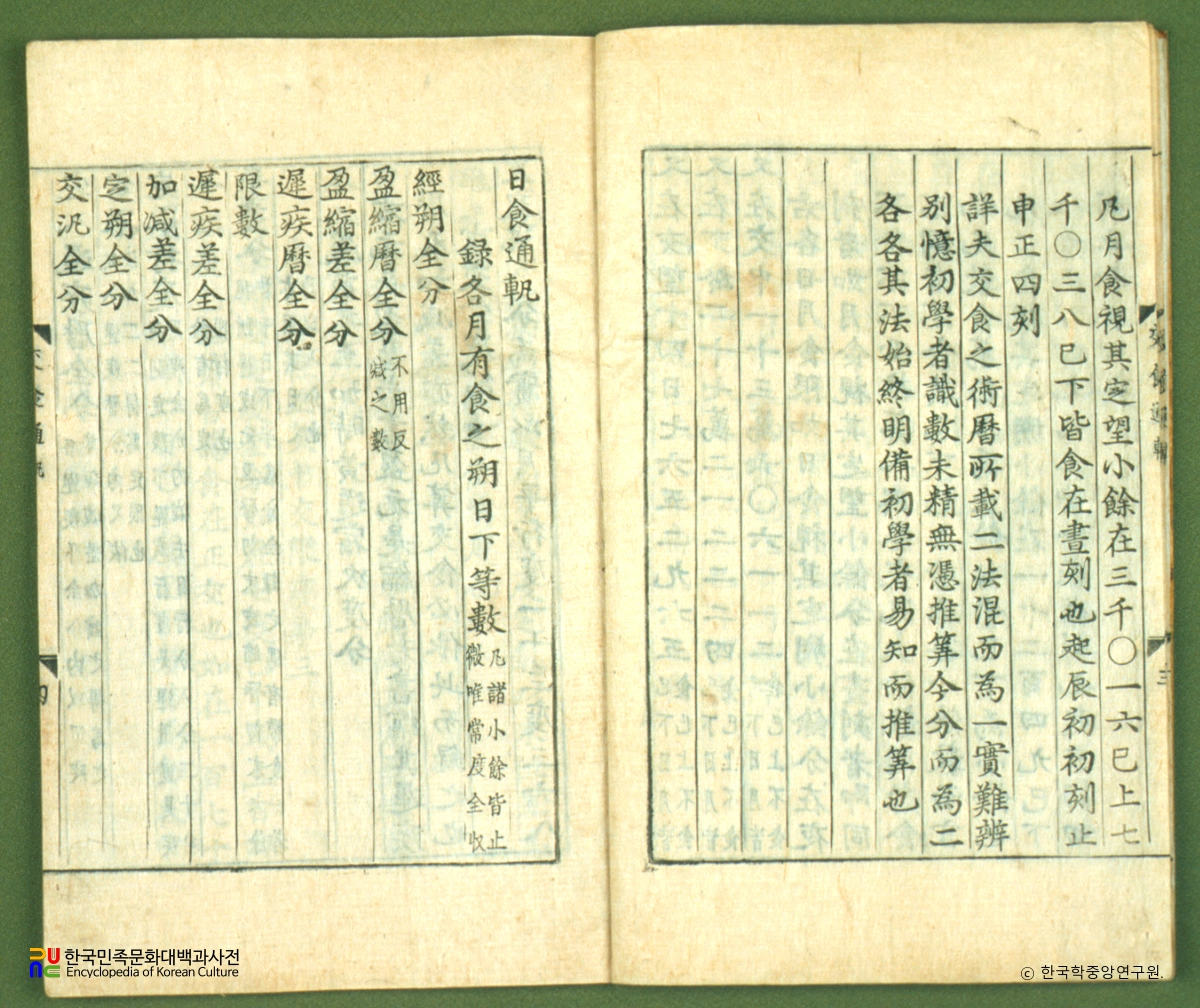 凡月食視其定望小餘在三千〇一六已上七
千〇三八已下皆食在晝刻也起辰初初刻止
申正四刻
詳夫交食之術曆所載二法混而為一實難辨
別憶初學者識數未精無憑推筭今分而為二
各各其法始終明備初學者易知而推筭也
三
日食通軌
錄各月有食之朔日下等數
凡諸小餘皆止
微唯常度全收
經朔全分
盈縮曆全分
不用反
減之數
盈縮差全分
遲疾曆全分
限數
遲疾差全分
加减差全分
定朔全分
交汎全分
交食通軌
四
한국민족문화대백과사전
Encyclopedia of Korean Culture
© 한국학중앙연구원.